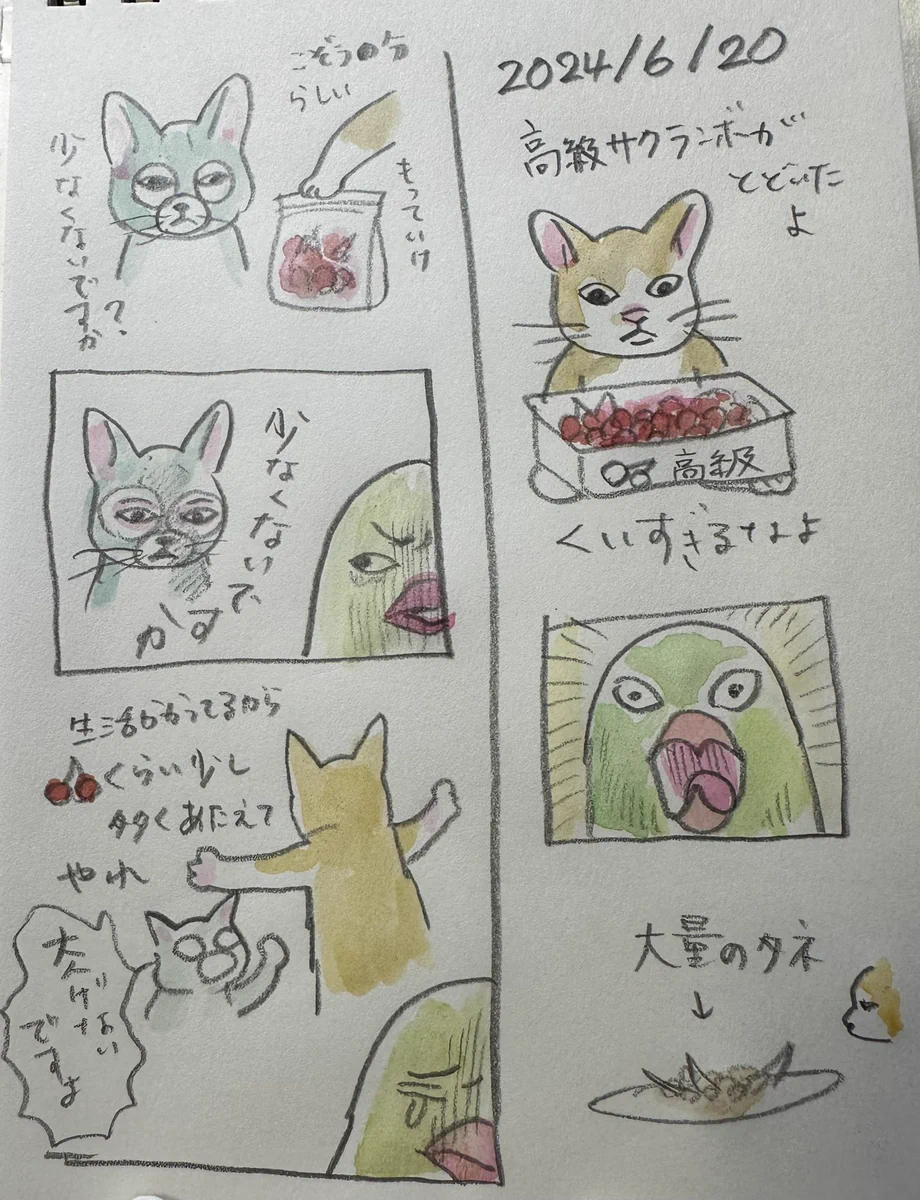 2024/6/20
高級サクランボーが
とどいた
よ
高級
くいすぎるなよ
大量のタネ
↓
こぞうの分
らしい
もっていけ
少なくないですか?
少なくないで
すか
生活がかかってるから
くらい少し
多くあたえて
やれ
大人げない
ですよ